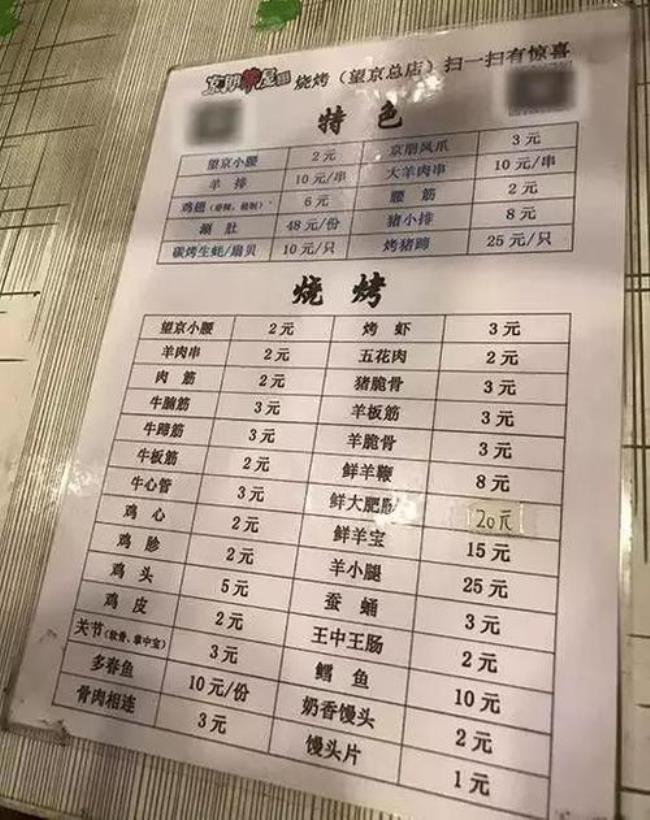 烧烤（望京总店）扫一扫有惊喜
特 色
望京小腰 2元 3元
羊 排 10元/串 大羊肉串 10元/串
鸡翅 6元 腰 筋 2元
涮 肚 48元/份 猪小排 8元
碳烤生蚝/扇贝 10元/只 烤猪蹄 25元/只
烧 烤
望京小腰 2元 烤 虾 3元
羊肉串 2元 五花肉 2元
肉 筋 2元 猪脆骨 3元
3元 羊板筋 3元
牛蹄筋 3元 羊脆骨 3元
牛板筋 2元 鲜羊鞭 8元
牛心管 3元 鲜大肥肠 20元
鸡 心 2元 鲜羊宝 15元
鸡 胗 2元 羊小腿 25元
鸡 头 5元 蚕 蛹 3元
鸡 皮 2元 王中王肠 2元
关节（软骨、掌中宝） 3元 鳕 鱼 10元
多春鱼 10元/份 奶香馒头 2元
骨肉相连 3元 馒头片 1元